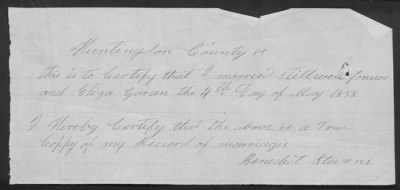 Huntingdon County ss
this is to Certify that I married Stillwell
and Eliza Goran the 4th Day of May 1858
I Hereby Certify that the above is a True
Coppy of my Record of marriages
Benedict Stevens